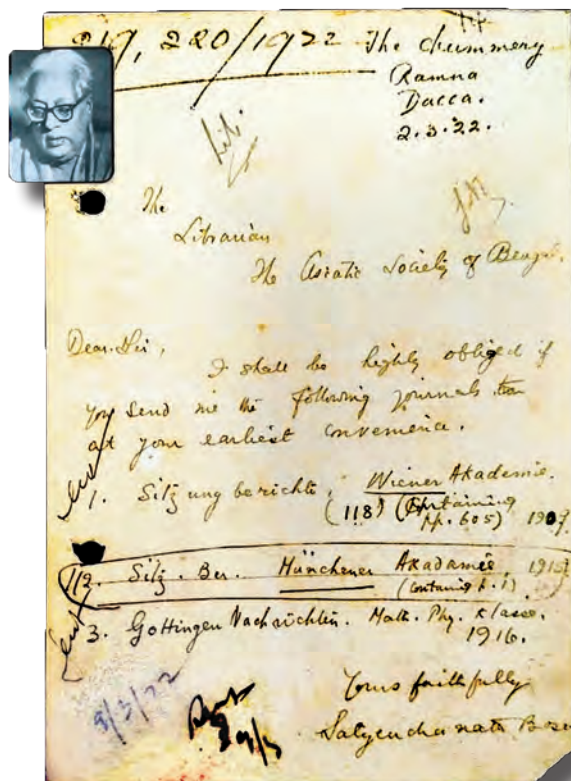 219, 220/1922
The Chummery
Ramna
Dacca.
2.3.22.
Lib.
The
Librarian
The Asiatic Society of Bengal.
Dear Sir,
I shall be highly obliged if
you send me the following journals
at your earliest convenience.
1. Sitzungberichte, Wiener Akademie.
(118) (Containing
pp. 605) 1909
2. Sitz. Ber. Münchener Akadamée 1915
(containing p. 1)
3. Gottingen Nachrichten. Math. Phy. Klasse.
1916.
Yours faithfully
Satyendranath Bose
3/3/22